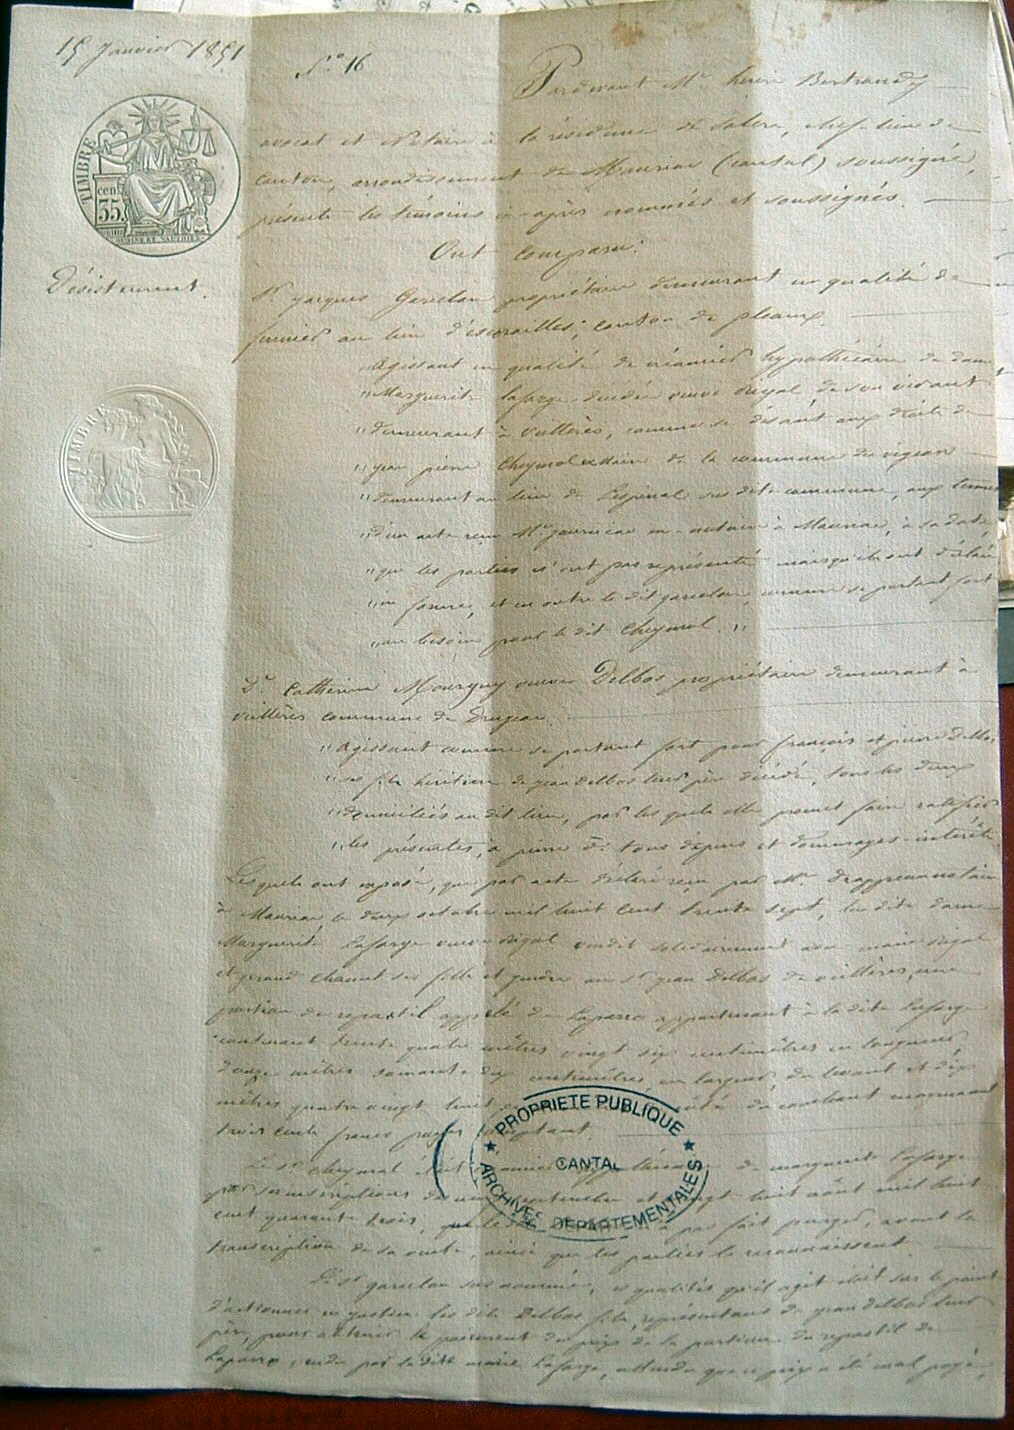 15 Janvier 1851
N.° 16
Pardevant Me Bertrandy
avocat et Notaire à la résidence de Salers, chef-lieu de
Canton, arrondissement de Mauriac (cantal) soussigné,
présents les témoins ci-après nommés et soussignés.
Ont Comparu:
TIMBRE
cen.
35.
Désistement.
TIMBRE
Sr. jacques Garcelon propriétaire demeurant en qualité de
fermier au lieu d'escorailles, canton de pleaux.
"Agissant en qualité de créancier hypothécaire de dame
"Marguerite Lafarge décédée veuve Rigal, de son vivant
"demeurant à Veillères, comme se disant aux droits de
"jean pierre Cheymol maire de la commune du vigean
"demeurant au lieu de Lespinal susdite commune, aux termes
"d'un acte reçu Me en notaire à Mauriac, à sa date,
"que les parties n'ont pas représenté mais qu'ils ont déclaré
"en forme, et en outre le dit garcelon, comme se portant fort
"au besoin pour le dit Cheymol."
De. Catherine Mourguy veuve Delbos propriétaire demeurant à
veillères commune de Drugeac.
"Agissant comme se portant fort pour françois et pierre Delbos
"ses fils héritiers de jean Delbos leur père décédé, tous les deux
"domiciliés au dit lieu, par lesquels elle promet faire ratifier
"les présentes, à peine de tous dépens et dommages-intérêts.
Lesquels ont exposé, que par acte reçu par Me. notaire
à Mauriac le deux octobre mil huit cent trente sept, la dite dame
Marguerite Lafarge veuve Rigal vendit solidairement avec marie Rigal
et Chanut ses fille et gendre au sr. jean Delbos de veillères, une
portion du repastil appelé de Laparro appartenant à la dite Lafarge
contenant trente quatre mètres vingt six centimètres en longueur,
douze mètres soixante dix centimètres, en largeur, du levant et dix
mètres quatre vingt huit côté du couchant moyennant
trois cents francs payés comptant.
PROPRIETE PUBLIQUE
CANTAL
ARCHIVES DEPARTEMENTALES
Le sr. Cheymol était de marguerite Lafarge
par inscriptions du septembre et vingt huit août mil huit
cent quarante trois, que a pas fait purger, avant la
transcription de sa vente, ainsi que les parties le reconnaissent.
Le sr. garcelon sus nommé, es qualités qu'il agit était sur le point
d'actionner en justice les dits Delbos fils, représentans de jean Delbos leur
père, pour obtenir le paiement du prix de la portion du repastil de
Laparro, vendu par la dite marie Lafarge, attendu que ce prix a été mal payé,